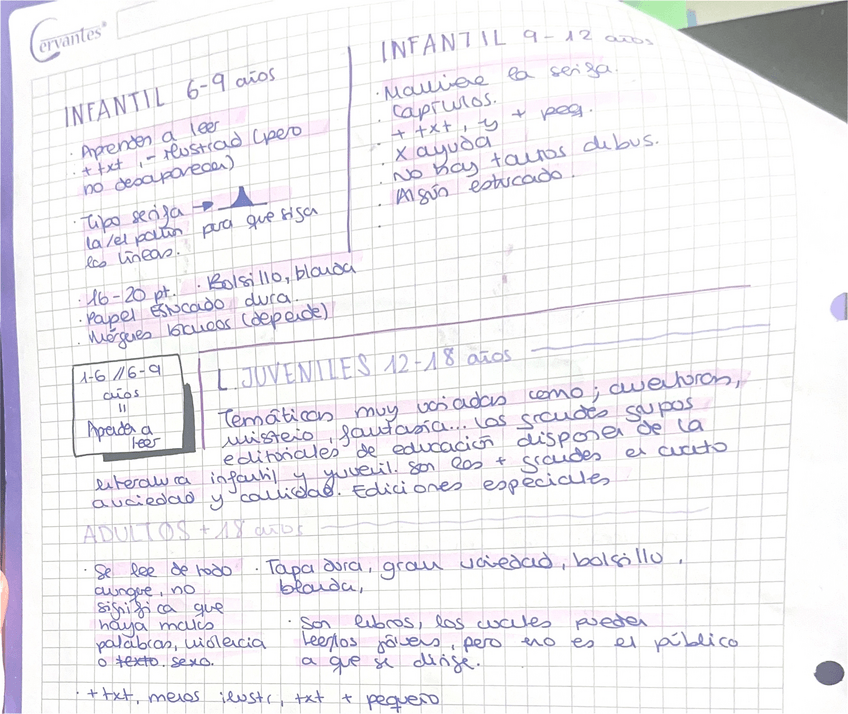 Cervantes
INFANTIL 6-9 años
· Aprender a leer
· + txt, - ilustrad (pero
no desaparecen)
· Tipo serifa →
la/el patín para que siga
las líneas.
· 16-20 pt. · Bolsillo, blanda
· Papel estucado dura.
· Márgenes blancos (depende)
INFANTIL 9-12 años
· Mantiene la serifa.
· Capítulos.
· + txt, y + peq.
· X ayuda
· No hay tantos dibus.
· Algún estucado.
1-6 // 6-9
años
=
Aprender a
leer
L. JUVENILES 12-18 años
Temáticas muy variadas como; aventuras,
misterio, fantasía... Los grandes grupos
editoriales de educación disponen de la
literatura infantil y yuvenil. Son los + grandes en cuanto
a variedad y cantidad. Ediciones especiales
ADULTOS + 18 años
· Se lee de todo
aunque, no
significa que
haya malas
palabras, violencia
o texto. sexo.
· Tapa dura, gran variedad, bolsillo,
blanda,
· Son libros, los cuales pueden
leerlos jóvens, pero no es el público
a que se dirige.
· + txt, menos ilustr, txt + pequeño